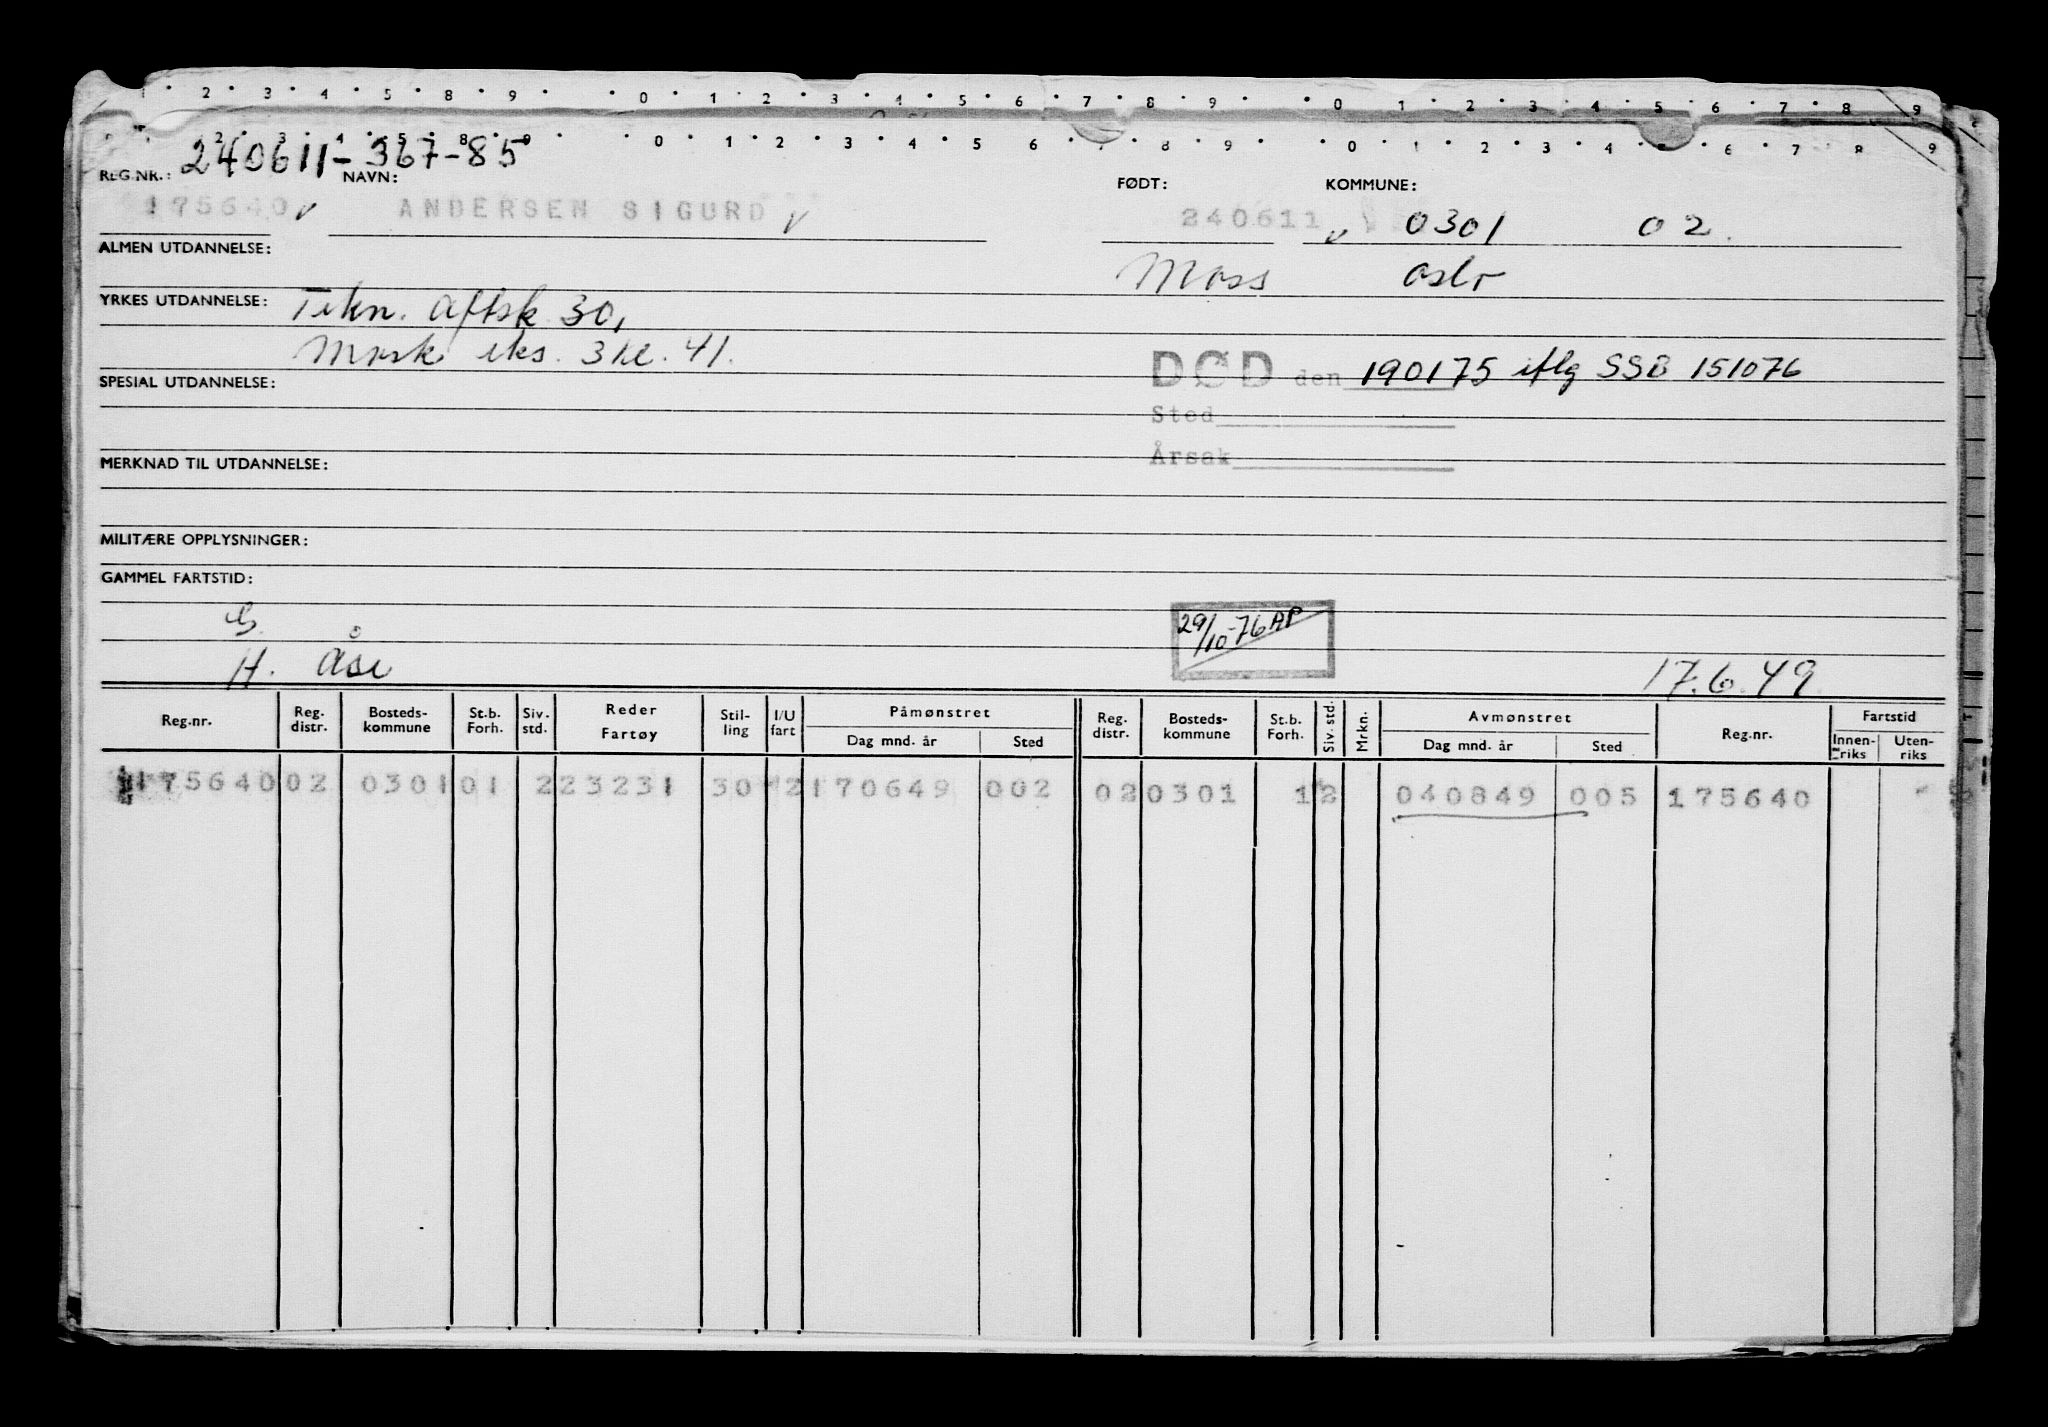 1 2 3 4 5 8 9 0 1 2 3 4 5 6 7 8 9 0 1 2 3 4 5 6 7 8 9
2 3 4 5 8 9 0 1 2 3 4 5 6 7 8 9 0 1 2 3 4 5 6 7 8 9
240611-367-85
REG.NR.: NAVN: FØDT: KOMMUNE:
175640 ANDERSEN SIGURD 240611 0301 02.
ALMEN UTDANNELSE:
Moss Oslo
YRKES UTDANNELSE: Tekn. aftsk 30,
Mask eks. 3 kl. 41.
DØD den 190175 iflg SSB 151076
SPESIAL UTDANNELSE:
Sted
Årsak
MERKNAD TIL UTDANNELSE:
MILITÆRE OPPLYSNINGER:
GAMMEL FARTSTID:
G.
29/10-76 AP
H. Åse 17.6.49
Reg.nr. Reg. distr. Bosteds- kommune St.b. Forh. Siv. std. Reder Fartøy Stil- ling I/U fart Påmønstret Dag mnd. år Sted Reg. distr. Bosteds- kommune St.b. Forh. Siv. std. Mrkn. Avmønstret Dag mnd. år Sted Reg.nr. Fartstid Innen- riks Uten- riks
175640 02 0301 01 2 23231 30 2 170649 002 02 0301 1 2 040849 005 175640